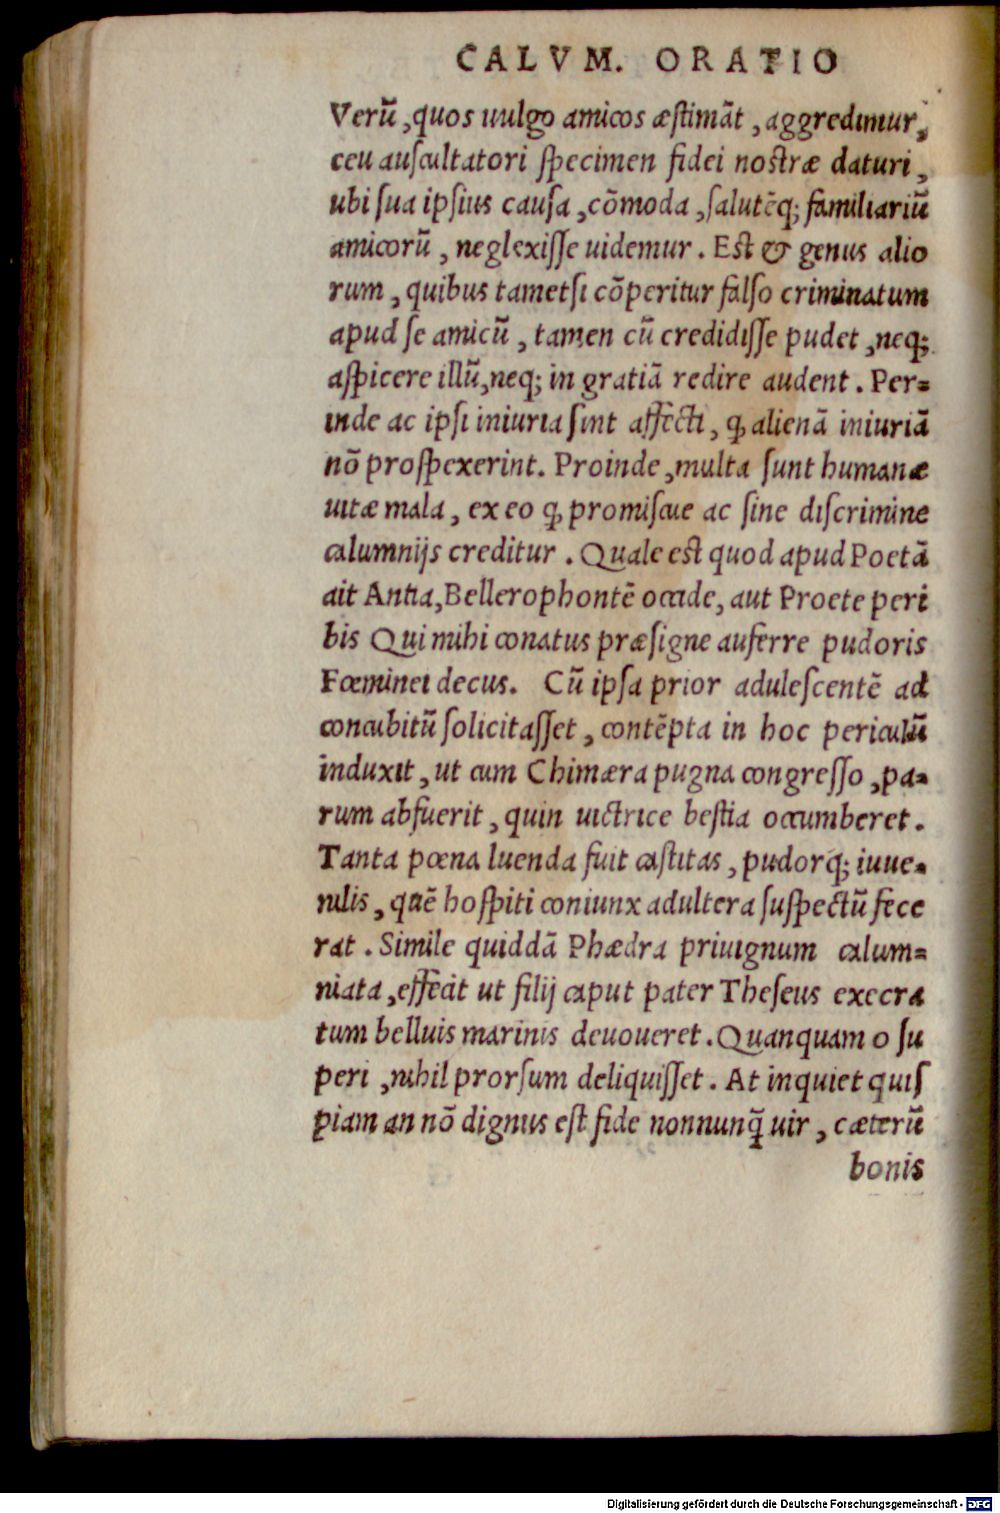 CALVM. ORATIO
Verũ, quos uulgo amicos æstimãt, aggredimur,
ceu auscultatori specimen fidei nostræ daturi,
ubi sua ipsius causa, cõmoda, salutẽq; familiariũ
amicorũ, neglexisse uidemur. Est & genus alio
rum, quibus tametsi cõperitur falso criminatum
apud se amicũ, tamen cũ credidisse pudet, neq;
aspicere illũ, neq; in gratiã redire audent. Per=
inde ac ipsi iniuria sint affecti, ꝙ alienã iniuriã
nõ prospexerint. Proinde, multa sunt humanæ
uitæ mala, ex eo ꝙ promiscue ac sine discrimine
calumnijs creditur. Quale est quod apud Poetã
ait Antia, Bellerophontẽ occide, aut Proete peri
bis Qui mihi conatus præsigne auferre pudoris
Fœminei decus. Cũ ipsa prior adulescentẽ ad
concubitũ solicitasset, contẽpta in hoc periculũ
induxit, ut cum Chimæra pugna congresso, pa=
rum abfuerit, quin uictrice bestia occumberet.
Tanta pœna luenda fuit castitas, pudorq; iuue=
nilis, quẽ hospiti coniunx adultera suspectũ fece
rat. Simile quiddã Phædra priuignum calum=
niata, effecit ut filij caput pater Theseus execra
tum belluis marinis deuoueret. Quanquam o su
peri, nihil prorsum deliquisset. At inquiet quis
piam an nõ dignus est fide nonnunq̃ uir, cæterũ
bonis
Digitalisierung gefördert durch die Deutsche Forschungsgemeinschaft - DFG